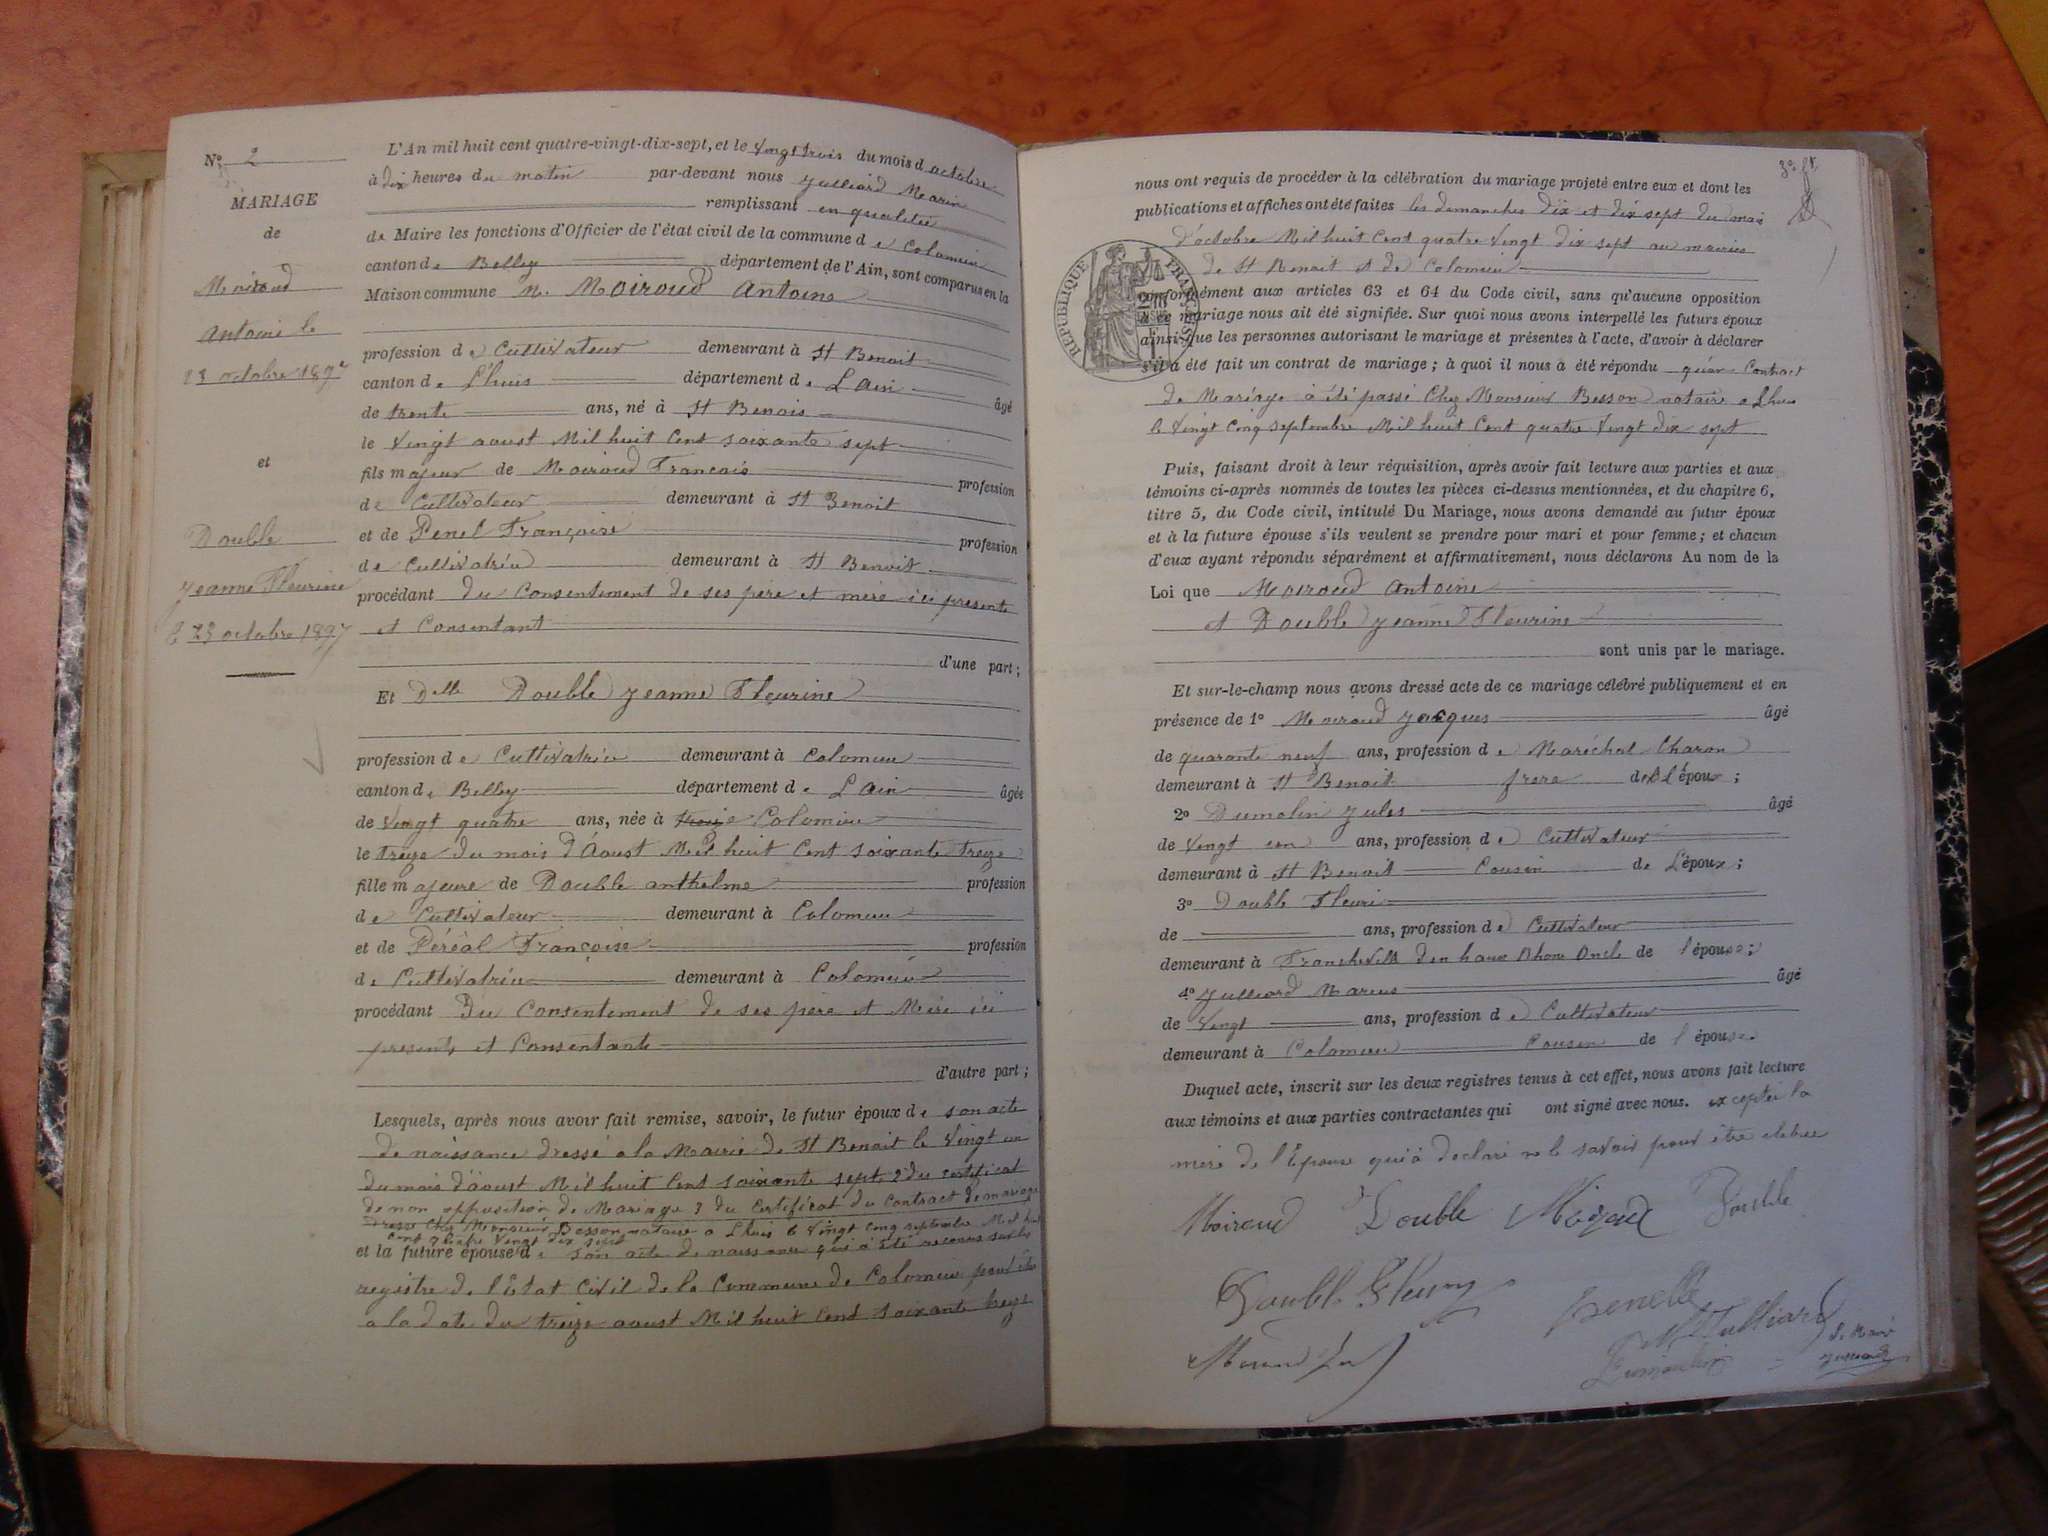 N° 2
MARIAGE
de
Moiroud
Antoine le
23 octobre 1897
et
Double
Jeanne Fleurine
le 23 octobre 1897
L'An mil huit cent quatre-vingt-dix-sept, et le vingt trois du mois d octobre
à dix heures du matin par-devant nous Julliard Marin
remplissant en qualitée
de Maire les fonctions d'Officier de l'état civil de la commune d e Colomieu
canton de Belley département de l'Ain, sont comparus en la
Maison commune M. Moiroud Antoine
profession d e Cultivateur demeurant à St Benoit
canton de Lhuis département d e L'Ain âgé
de trente ans, né à St Benoit
le Vingt aoust Mil huit Cent soixante sept
fils majeur de Moiroud François profession
de Cultivateur demeurant à St Benoit
et de Penel Françoise profession
de Cultivatrice demeurant à St Benoit
procédant du Consentement de ses père et mère ici présents
et Consentant
d'une part;
Et Delle Double Jeanne Fleurine
profession d e Cultivatrice demeurant à Colomieu
canton de Belley département d e L'Ain âgée
de Vingt quatre ans, née à Colomieu
le treize du mois d'Aoust Mil huit Cent soixante treize
fille majeure de Double anthelme profession
de Cultivateur demeurant à Colomieu
et de Péréal Françoise profession
de Cultivatrice demeurant à Colomieu
procédant Du Consentement de ses père et Mère ici
présents et Consentants
d'autre part;
Lesquels, après nous avoir fait remise, savoir, le futur époux de son acte
de naissance dressé a la Mairie de St Benoit le Vingt un
du mois d'aoust Mil huit Cent soixante sept 2° du certificat
de non opposition de Mariage 3 du Certificat du Contract de mariage
dressé Chez Monsieur Besson notaire a Lhuis le Vingt cinq septembre Mil huit
Cent quatre Vingt dix sept
et la future épouse d e son acte de naissance qui à été reconnu sur les
registre de l'Etat Civil de la Commune de Colomieu pour être
a la date du treize aoust Mil huit Cent soixante treize
nous ont requis de procéder à la célébration du mariage projeté entre eux et dont les
publications et affiches ont été faites les demanches dix et dix sept du mois
d'octobre Mil huit Cent quatre Vingt dix sept au mairies
de St Benoit et de Colomieu
RÉPUBLIQUE FRANÇAISE
conformément aux articles 63 et 64 du Code civil, sans qu'aucune opposition
à ce mariage nous ait été signifiée. Sur quoi nous avons interpellé les futurs époux
ainsi que les personnes autorisant le mariage et présentes à l'acte, d'avoir à déclarer
s'il a été fait un contrat de mariage; à quoi il nous a été répondu quan Contract
de Mariage à été passé Chez Monsieur Besson notaire a Lhuis
le Vingt Cinq septembre Mil huit Cent quatre Vingt dix sept
Puis, faisant droit à leur réquisition, après avoir fait lecture aux parties et aux
témoins ci-après nommés de toutes les pièces ci-dessus mentionnées, et du chapitre 6,
titre 5, du Code civil, intitulé Du Mariage, nous avons demandé au futur époux
et à la future épouse s'ils veulent se prendre pour mari et pour femme; et chacun
d'eux ayant répondu séparément et affirmativement, nous déclarons Au nom de la
Loi que Moiroud Antoine
et Double Jeanne Fleurine
sont unis par le mariage.
Et sur-le-champ nous avons dressé acte de ce mariage célébré publiquement et en
présence de 1° Moiroud Jacques âgé
de quarante neuf ans, profession d e Maréchal Charon
demeurant à St Benoit frere de l'époux;
2° Dumolin Jules âgé
de Vingt un ans, profession d e Cultivateur
demeurant à St Benoit Cousin de L'époux;
3° Double Fleuri
de ans, profession d e Cultivateur
demeurant à Francheville Rhone Oncle de l'épouse;
4° Julliard Marius âgé
de Vingt ans, profession d e Cultivateur
demeurant à Colomieu Cousin de l'épouse.
Duquel acte, inscrit sur les deux registres tenus à cet effet, nous avons fait lecture
aux témoins et aux parties contractantes qui ont signé avec nous. exceptée la
mère de l'Epouse qui à declaré ne le savoir pour être
Moiroud Double Double
Double Fleury Penelle
M Julliard Le Maire
Dumoulin Julliard